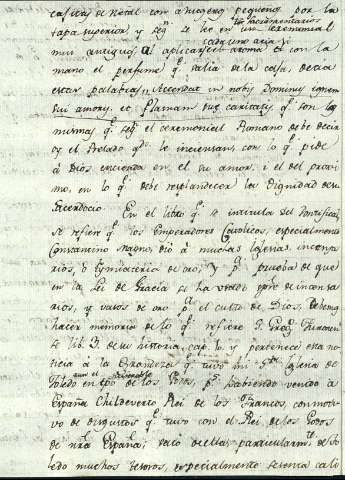 casitas de metal con agugeros pequeños por la
tapa superior, y segn. se lee en un ceremonial
mui antiguo, al aplicarse el aroma con la
cada uno a su
mano el perfume q. salia de la casa, decia
estas palabras, Accendat in nobis Dominus ignem
sui amoris, et flamam suæ caritatis q. son las
mismas q. segn. el ceremonial Romano debe decir
oy el Prelado qdo. le inciensan, con lo q. pide
à Dios encienda en èl su amor, i el del proxi-
mo, en lo q. debe resplandecer la dignidad de su
Sacerdocio. En el libro q. se intitula del Pontifical,
se refiere q. los Emperadores Catolicos, especialmente
Constantino Magno, diò à muchas Iglesias, incensa-
rios, ò de oro; y pa. prueba de que
en la Lei de Gracia se ha usado pre. de incensa-
rios, y vasos de oro pa. el culto de Dios,
hacer memoria de lo q. refiere S. Greg. Turonen-
se lib. 3. de su historia, cap. 10. y pertenece esta no-
ticia à la grandeza q. tuvo mi Sta. Iglesia de
Toledo en tpo. de los Godos, ps. habiendo venido à
España Childeverto Rei de los Francos, con moti-
vo de disgustos q. tuvo con el Rei de los Godos
de nra. España; sacò de ella, particularmte. de To-
ledo muchos tesoros, especialmente sesenta cali